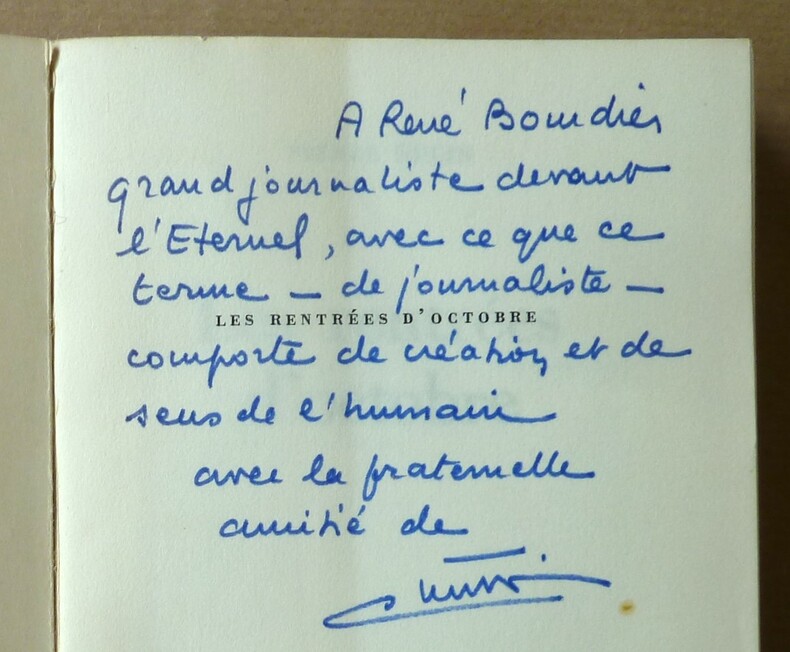 A René Bourdier
grand journaliste devant
l'Eternel, avec ce que ce
terme – de journaliste –
LES RENTRÉES D'OCTOBRE
comporte de création et de
sens de l'humain
avec la fraternelle
amitié de